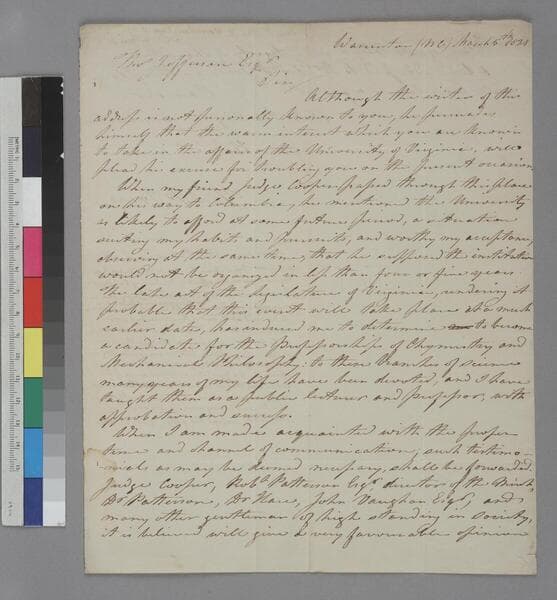 Warrenton (NC) March 5th 1821
Thos Jefferson Esqr
Sir
Although the writer of this
address is not personally known to you, he persuades
himself that the warm interest which you are known
to take in the affairs of the University of Virginia, will
plead his excuse for troubling you on the present occasion.
When my friend Judge Cooper passed through this place
on his way to Columbia, he mentioned the University
as likely to afford at some future period, a situation
suiting my habits and pursuits, and worthy my acceptance,
observing at the same time, that he supposed the institution
would not be organized in less than four or five years
The late act of the legislature of Virginia, rendering it
probable that this event will take place at a much
earlier date, has induced me to determine to become
a candidate for the professorships of Chymistry and
Mechanical Philosophy: to these branches of science
many years of my life have been devoted, and I have
taught them as a public lecturer and professor, with
approbation and success.
When I am made acquainted with the proper
time and channel of communication, such testimo-
nials as may be deemed necessary, shall be forwarded.
Judge Cooper, Robt Patterson Esqr director of the Mint,
Dr Patterson, Dr Hare, John Vaughan Esqr, and
many other gentlemen of high standing in society,
it is believed will give a very favourable opinion